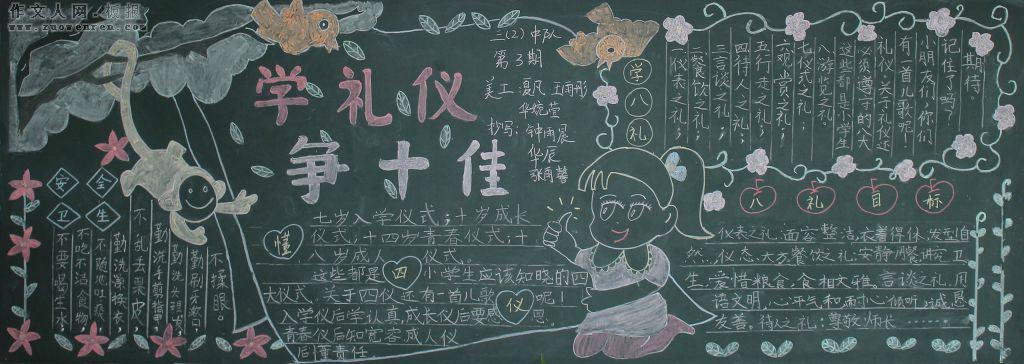 作文人网·板报
www.zuowenren.com
三(2)中队
第3期
学礼仪
争十佳
抄写:钟雨晨
华辰
安全
卫生
不揉眼。
不乱丢果皮,
不吃不洁食物,
不要喝生水,
七岁入学仪式;十岁成长
仪式;十四岁青春仪式;十
八岁成人 仪式。
这些都是 小学生应该知晓的四
大仪式,关于四仪还有一首儿歌 呢!
入学仪后学认真,成长仪后要感 恩。
青春仪后知宽容,成人仪
后懂责任
懂
四
仪
学八礼
期待
记住了吗?
小朋友们,你们
有一首儿歌呢!
礼仪,关于礼仪还
必须遵守的八大
这些都是小学生
八游览之礼
七仪式之礼;
六观赏之礼;
五行走之礼;
四待人之礼;
三言谈之礼;
二餐饮之礼;
一仪表之礼;
八礼目标
仪表之礼:面容整洁,衣着得体,发型自
然,仪态大方。餐饮之礼:安静用餐,讲卫
生,爱惜粮食,食相文雅。言谈之礼:用
语文明,心平气和,耐心倾听,诚恳
友善。待人之礼:尊敬师长………